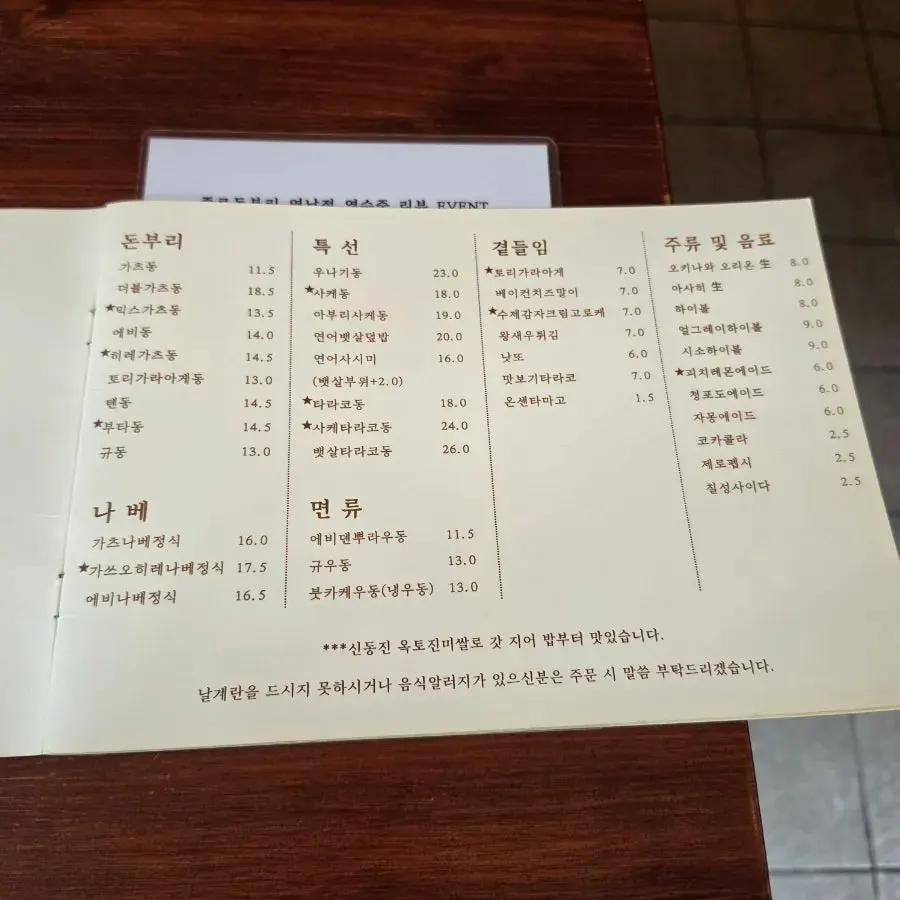 연남점 영수증 리뷰 EVENT
돈부리
가츠동 11.5
더블가츠동 18.5
★믹스가츠동 13.5
에비동 14.0
★히레가츠동 14.5
토리가라아게동 13.0
텐동 14.5
★부타동 14.5
규동 13.0
나베
가츠나베정식 16.0
★가쓰오히레나베정식 17.5
에비나베정식 16.5
특선
우나기동 23.0
★사케동 18.0
아부리사케동 19.0
연어뱃살덮밥 20.0
연어사시미 16.0
(뱃살부위+2.0)
★타라코동 18.0
★사케타라코동 24.0
뱃살타라코동 26.0
면류
에비덴뿌라우동 11.5
규우동 13.0
붓카케우동(냉우동) 13.0
곁들임
★토리가라아게 7.0
베이컨치즈말이 7.0
★수제감자크림고로케 7.0
왕새우튀김 7.0
낫또 6.0
맛보기타라코 7.0
온센타마고 1.5
주류 및 음료
오키나와 오리온 生 8.0
아사히 生 8.0
하이볼 8.0
얼그레이하이볼 9.0
시소하이볼 9.0
★피치레몬에이드 6.0
청포도에이드 6.0
자몽에이드 6.0
코카콜라 2.5
제로펩시 2.5
칠성사이다 2.5
***신동진 옥토진미쌀로 갓 지어 밥부터 맛있습니다.
날계란을 드시지 못하시거나 음식알러지가 있으신분은 주문 시 말씀 부탁드리겠습니다.